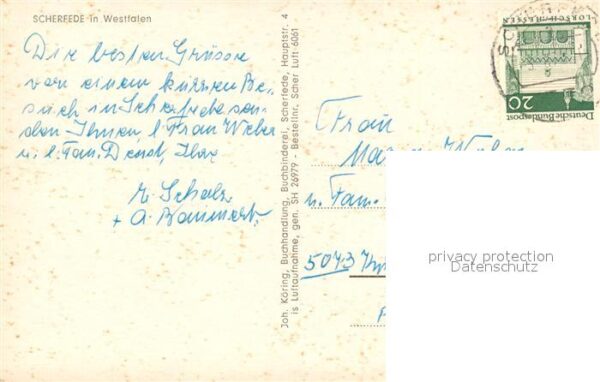 SCHERFEDE in Westfalen
Die besten Grüsse
von einem kurzen Be-
such in Scherfede sen-
den Ihnen l. Frau Weber
u. l. Fam. Ihre
+ A. Bammert
Joh. Köring, Buchhandlung, Buchbinderei, Scherfede, Hauptstr. 4
is Luftaufnahme, gen. SH 26979 - Bestellnr. Scher Luft 6061
LORSCH·HESSEN
20
Deutsche Bundespost
Frau
u. Fam.
5043
privacy protection
Datenschutz